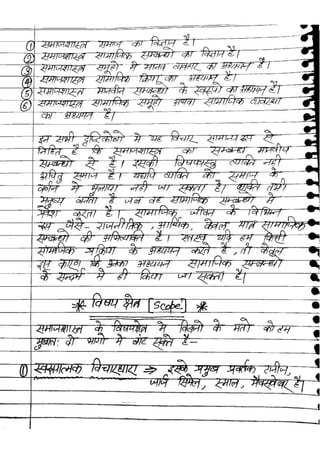 ① समाजशास्त्र समाज का विज्ञान है।
② समाजशास्त्र सामाजिक सम्बन्धो का विज्ञान है।
③ समाजशास्त्र समूहो में मानव व्यवहार का अध्ययन है।
④ समाजशास्त्र सामाजिक क्रिया का अध्ययन है।
⑤ समाजशास्त्र मानवीय सम्बन्धो के स्वरूपो का अध्ययन है।
⑥ समाजशास्त्र सामाजिक समूहो अथवा सामाजिक व्यवस्था
का अध्ययन है।
इन सभी दृष्टिकोणो में यह विचार सामान्य रूप से
निहित है कि समाजशास्त्र का सम्बन्ध मानवीय
सम्बन्धो से है। इसकी विषयवस्तु व्यक्ति नही
अपितु समाज है। यद्यपि व्यक्ति को समाज के
वर्णन में भुलाया नही जा सकता है। व्यक्ति तभी
मनुष्य बनता है जब वह सामाजिक सम्बन्धो में
प्रवेश करता है। सामाजिक जीवन के विभिन्न
रूप जैसे- राजनीतिक, आर्थिक, केवल मात्र सामाजिक
सम्बन्धो की अभिव्यक्ति है। परन्तु यदि हम किसी
सामाजिक प्रक्रिया का अध्ययन करते है, तो केवल
इस कारण कि इनका अध्ययन सामाजिक सम्बन्धो
के सन्दर्भ में ही किया जा सकता है।
* विषय क्षेत्र [Scope] *
समाजशास्त्र के विषयक्षेत्र में विद्वानो के मतो को हम
मुख्यतः दो भागो में बांट सकते है-
① स्वरूपात्मक विचारधारा ⇒ इसके प्रमुख प्रवर्तक टानीज,
जार्ज सिमेल, स्माल, मैक्सवेबर है।